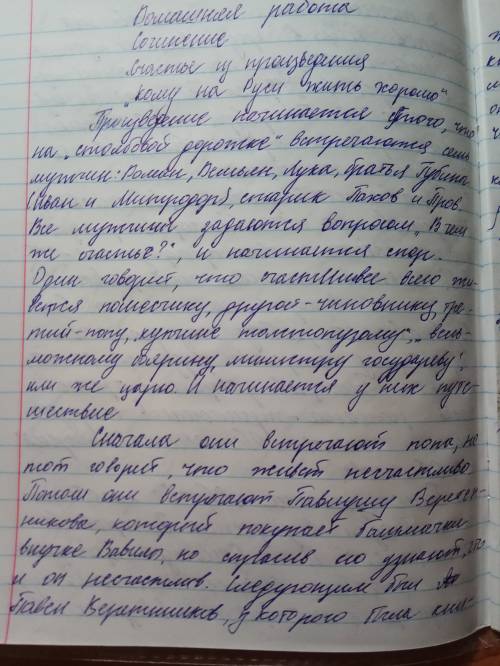 Домашняя работа
Сочинение
Счастье из произведения
"Кому на Руси жить хорошо"
Произведение начинается с того, что
на "столбовой дорожке" встречаются семь
мужчин: Роман, Демьян, Лука, братья Губина
(Иван и Митродор), старик Пахов и Пров.
Все мужчины задаются вопросом "В чем
же счастье?", и начинается спор.
Один говорит, что счастливее всего жи-
вется помещику, другой - чиновнику, тре-
тий - попу, "купчине толстопузому", "вель-
можному боярину, министру государеву",
или же царю. И начинается у них путе-
шествие
Сначала они встречают попа, но
тот говорит, что живет несчастливо.
Потом они встречают Павлушу Веретен-
никова, который покупает башмачки
внучке Вавилы, но спросив его узнают, что
и он несчастлив. Следующим был
Павел Веретенников, у которого была кни-